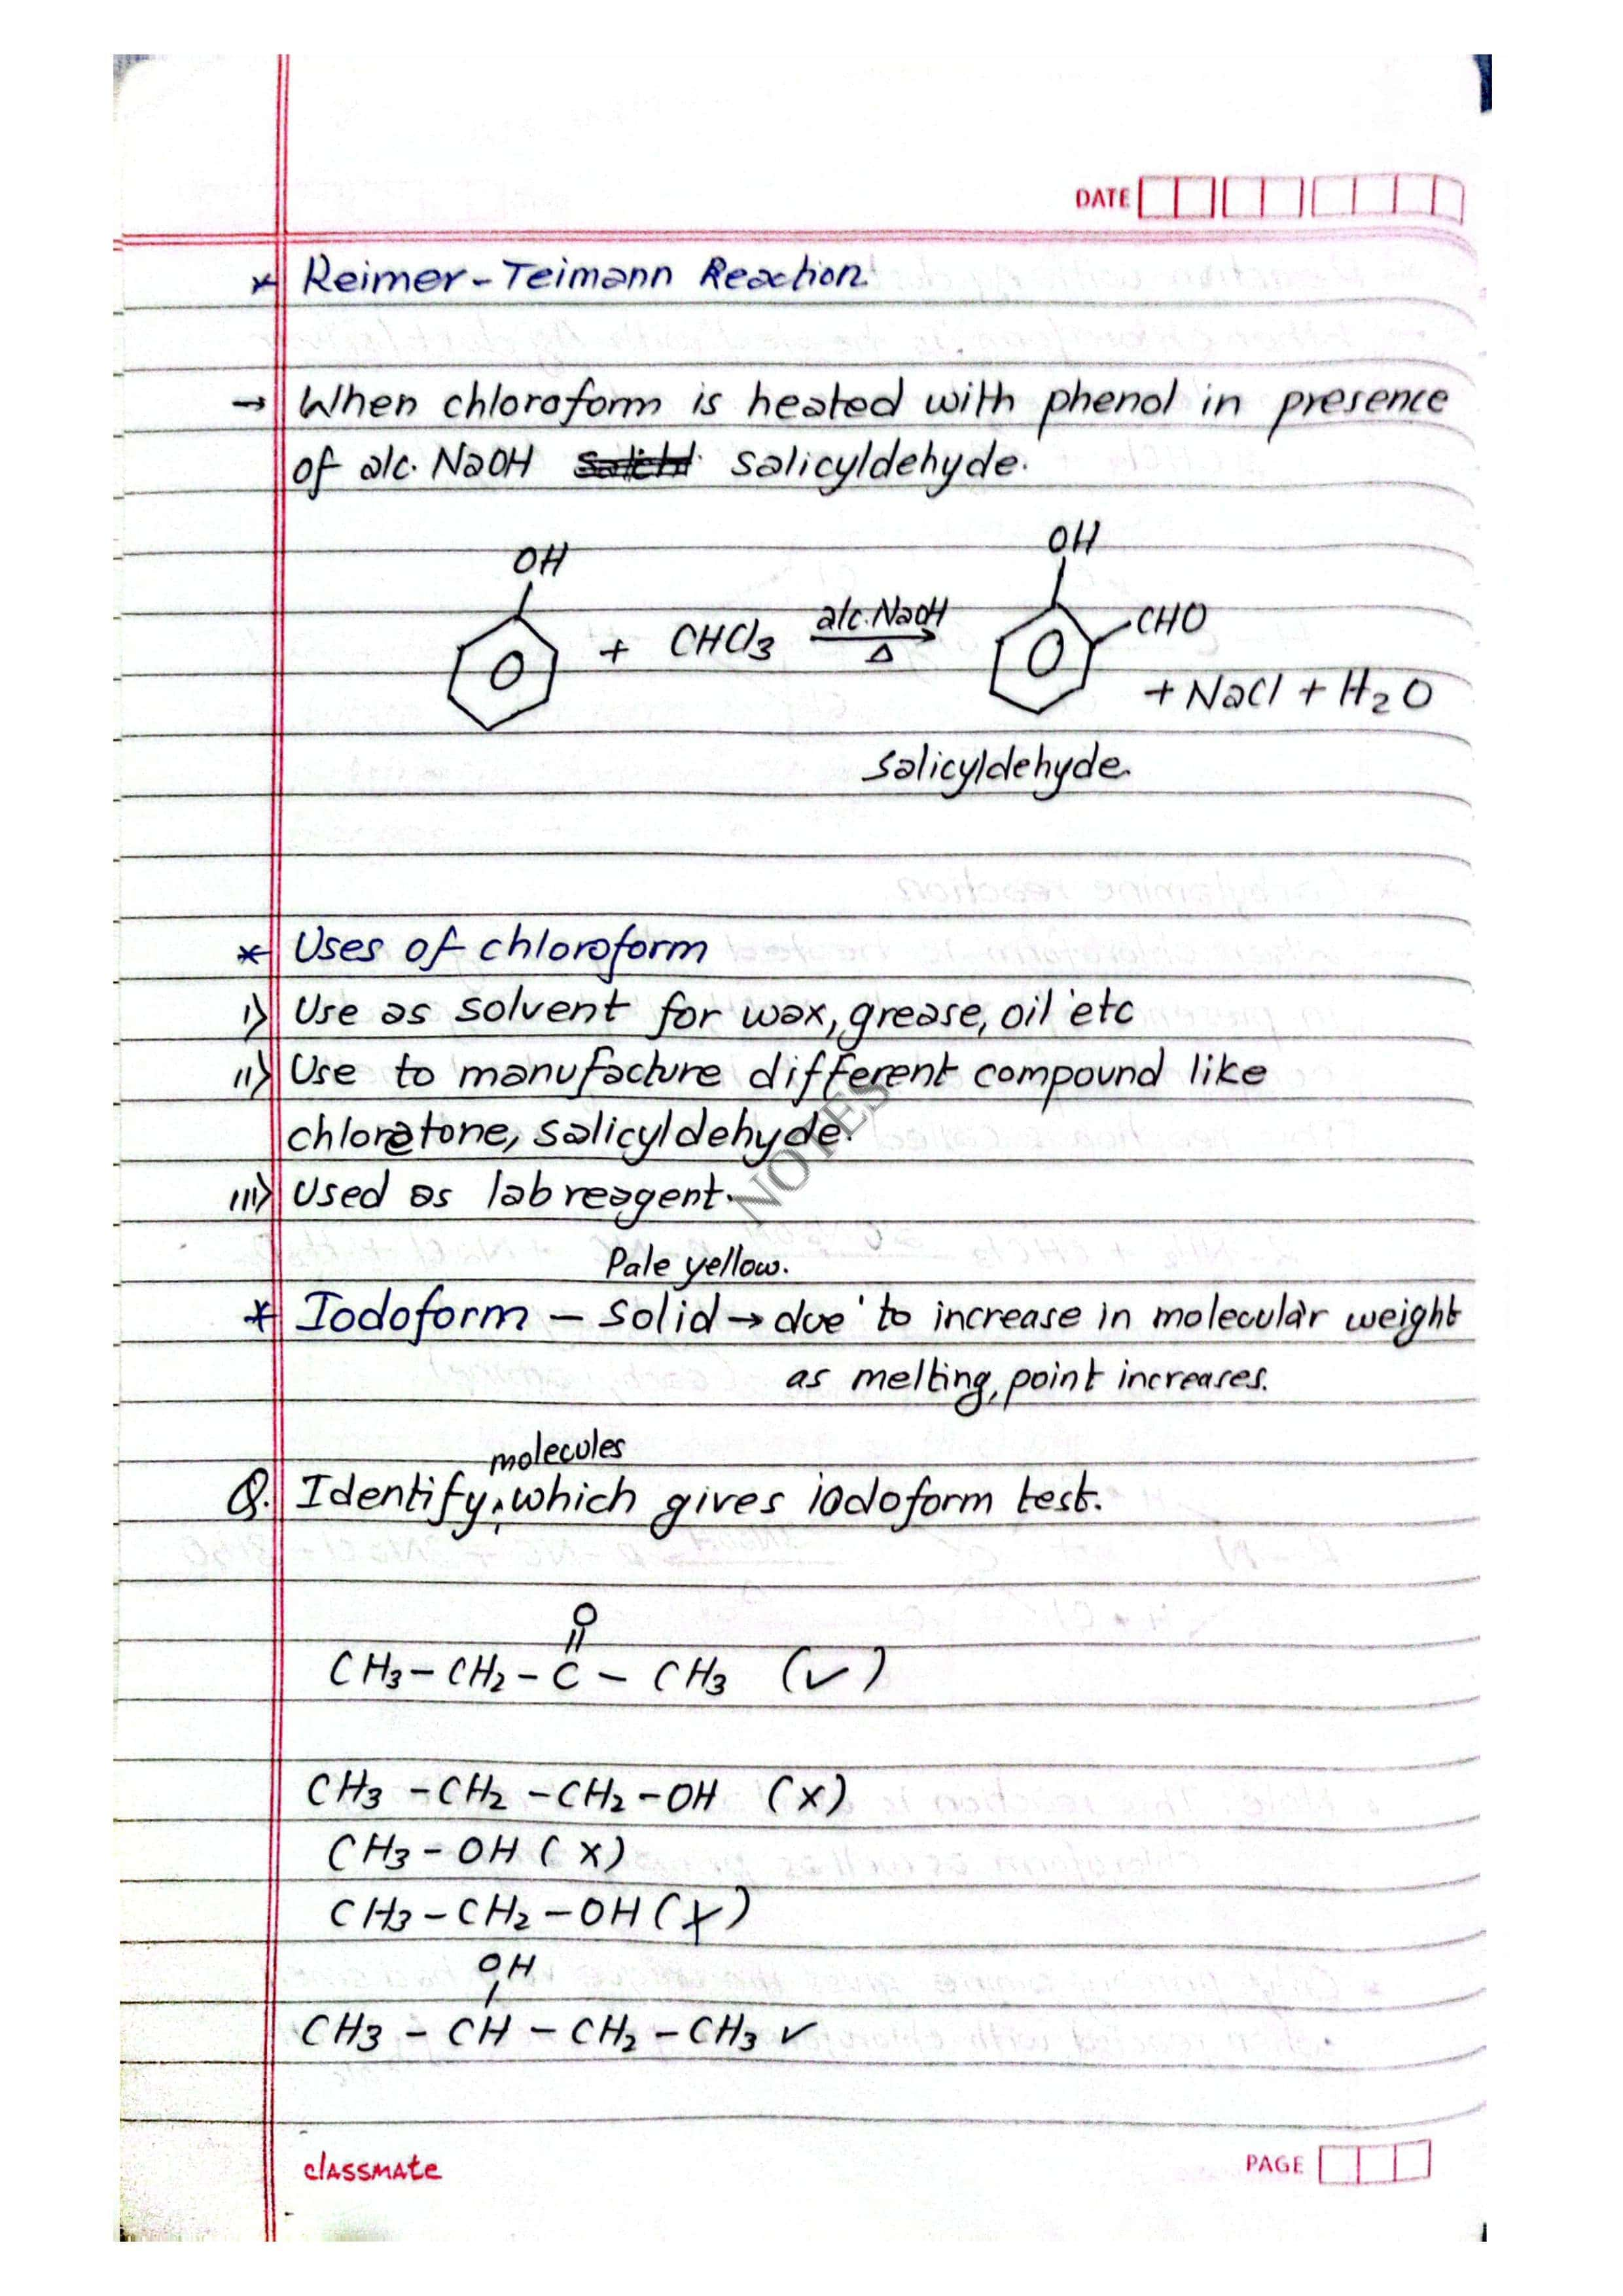 DATE
* Reimer-Teimann Reaction
→ When chloroform is heated with phenol in presence
of alc. NaOH salicyldehyde.
OH
OH
+ CHCl3 alc. NaOH Δ CHO
+ NaCl + H2O
salicyldehyde.
* Uses of chloroform
i) Use as solvent for wax, grease, oil etc
ii) Use to manufacture different compound like
chloretone, salicyldehyde.
iii) Used as lab reagent.
NOTES
Pale yellow.
* Iodoform – solid → due to increase in molecular weight
as melting, point increases.
molecules
Q. Identify, which gives iodoform test.
O
||
CH3 – CH2 – C – CH3 (✓)
CH3 – CH2 – CH2 – OH (x)
CH3 – OH (x)
CH3 – CH2 – OH (x)
OH
CH3 – CH – CH2 – CH3 ✓
classmate
PAGE